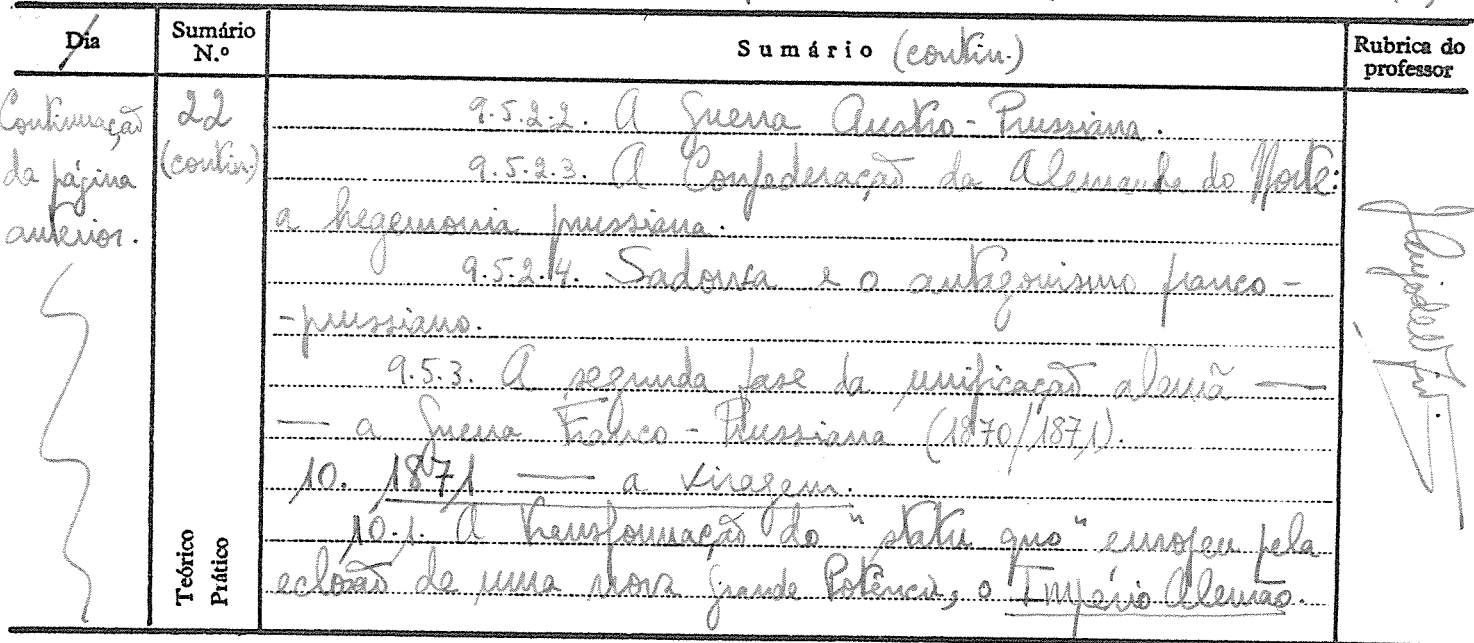 Dia
Sumário N.º
Sumário (contin.)
Rubrica do professor
Continuação da página anterior.
22 (contin.)
9.5.2.2. A Guerra Austro-Prussiana.
9.5.2.3. A Confederação da Alemanha do Norte:
a hegemonia prussiana.
9.5.2.4. Sadowa e o antagonismo franco-
-prussiano.
9.5.3. A segunda fase da unificação alemã —
— a Guerra Franco-Prussiana (1870/1871).
10. 1871 — a viragem.
10.1. A transformação do "statu quo" europeu pela
eclosão de uma nova grande Potência, o Império Alemão.
Teórico
Prático